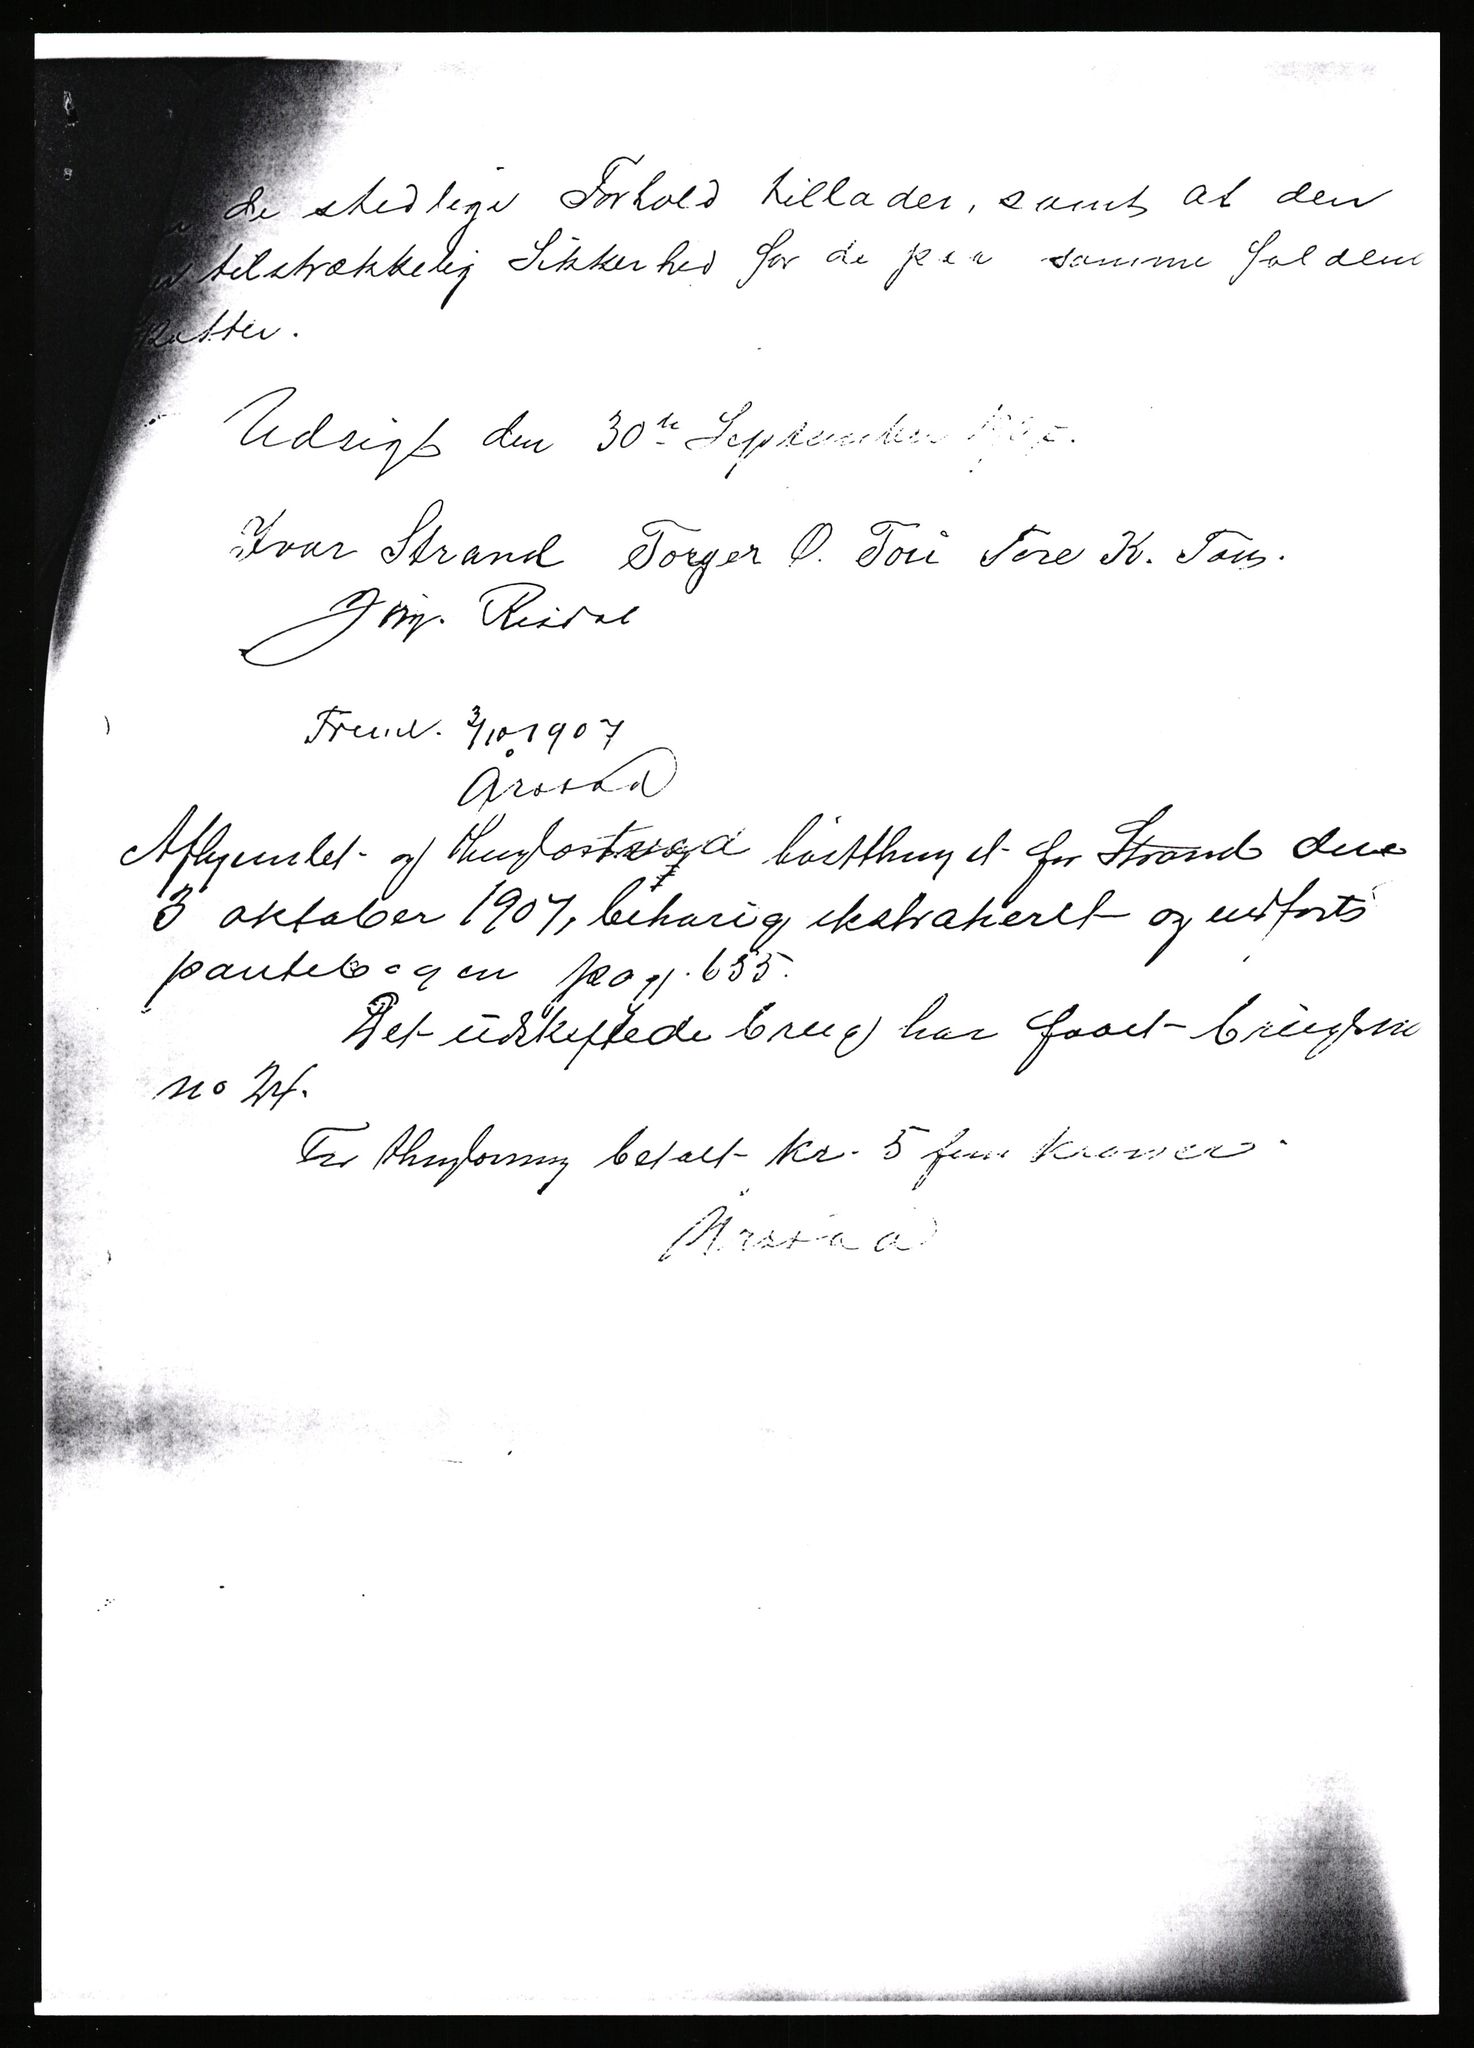 de stedlige Forhold tillader, samt at den
tilstrækkelig Sikkerhed for de paa samme faldene
Skatter.
Udsigt den 30te September
Ivar Strand Torger O. Tou Tore K. Tou.
Jörg. Risdal
Freml. 3/10 1907
Årstad
Aflyæst- og thinglæst ved høstthinget for Strand den
3 oktober 1907, behørig ekstraheret og indført i
pantebogen pag. 655.
Det udskiftede brug har faaet brugsno
no 24.
For thinglysning betalt kr. 5 fem kroner.
Årstad